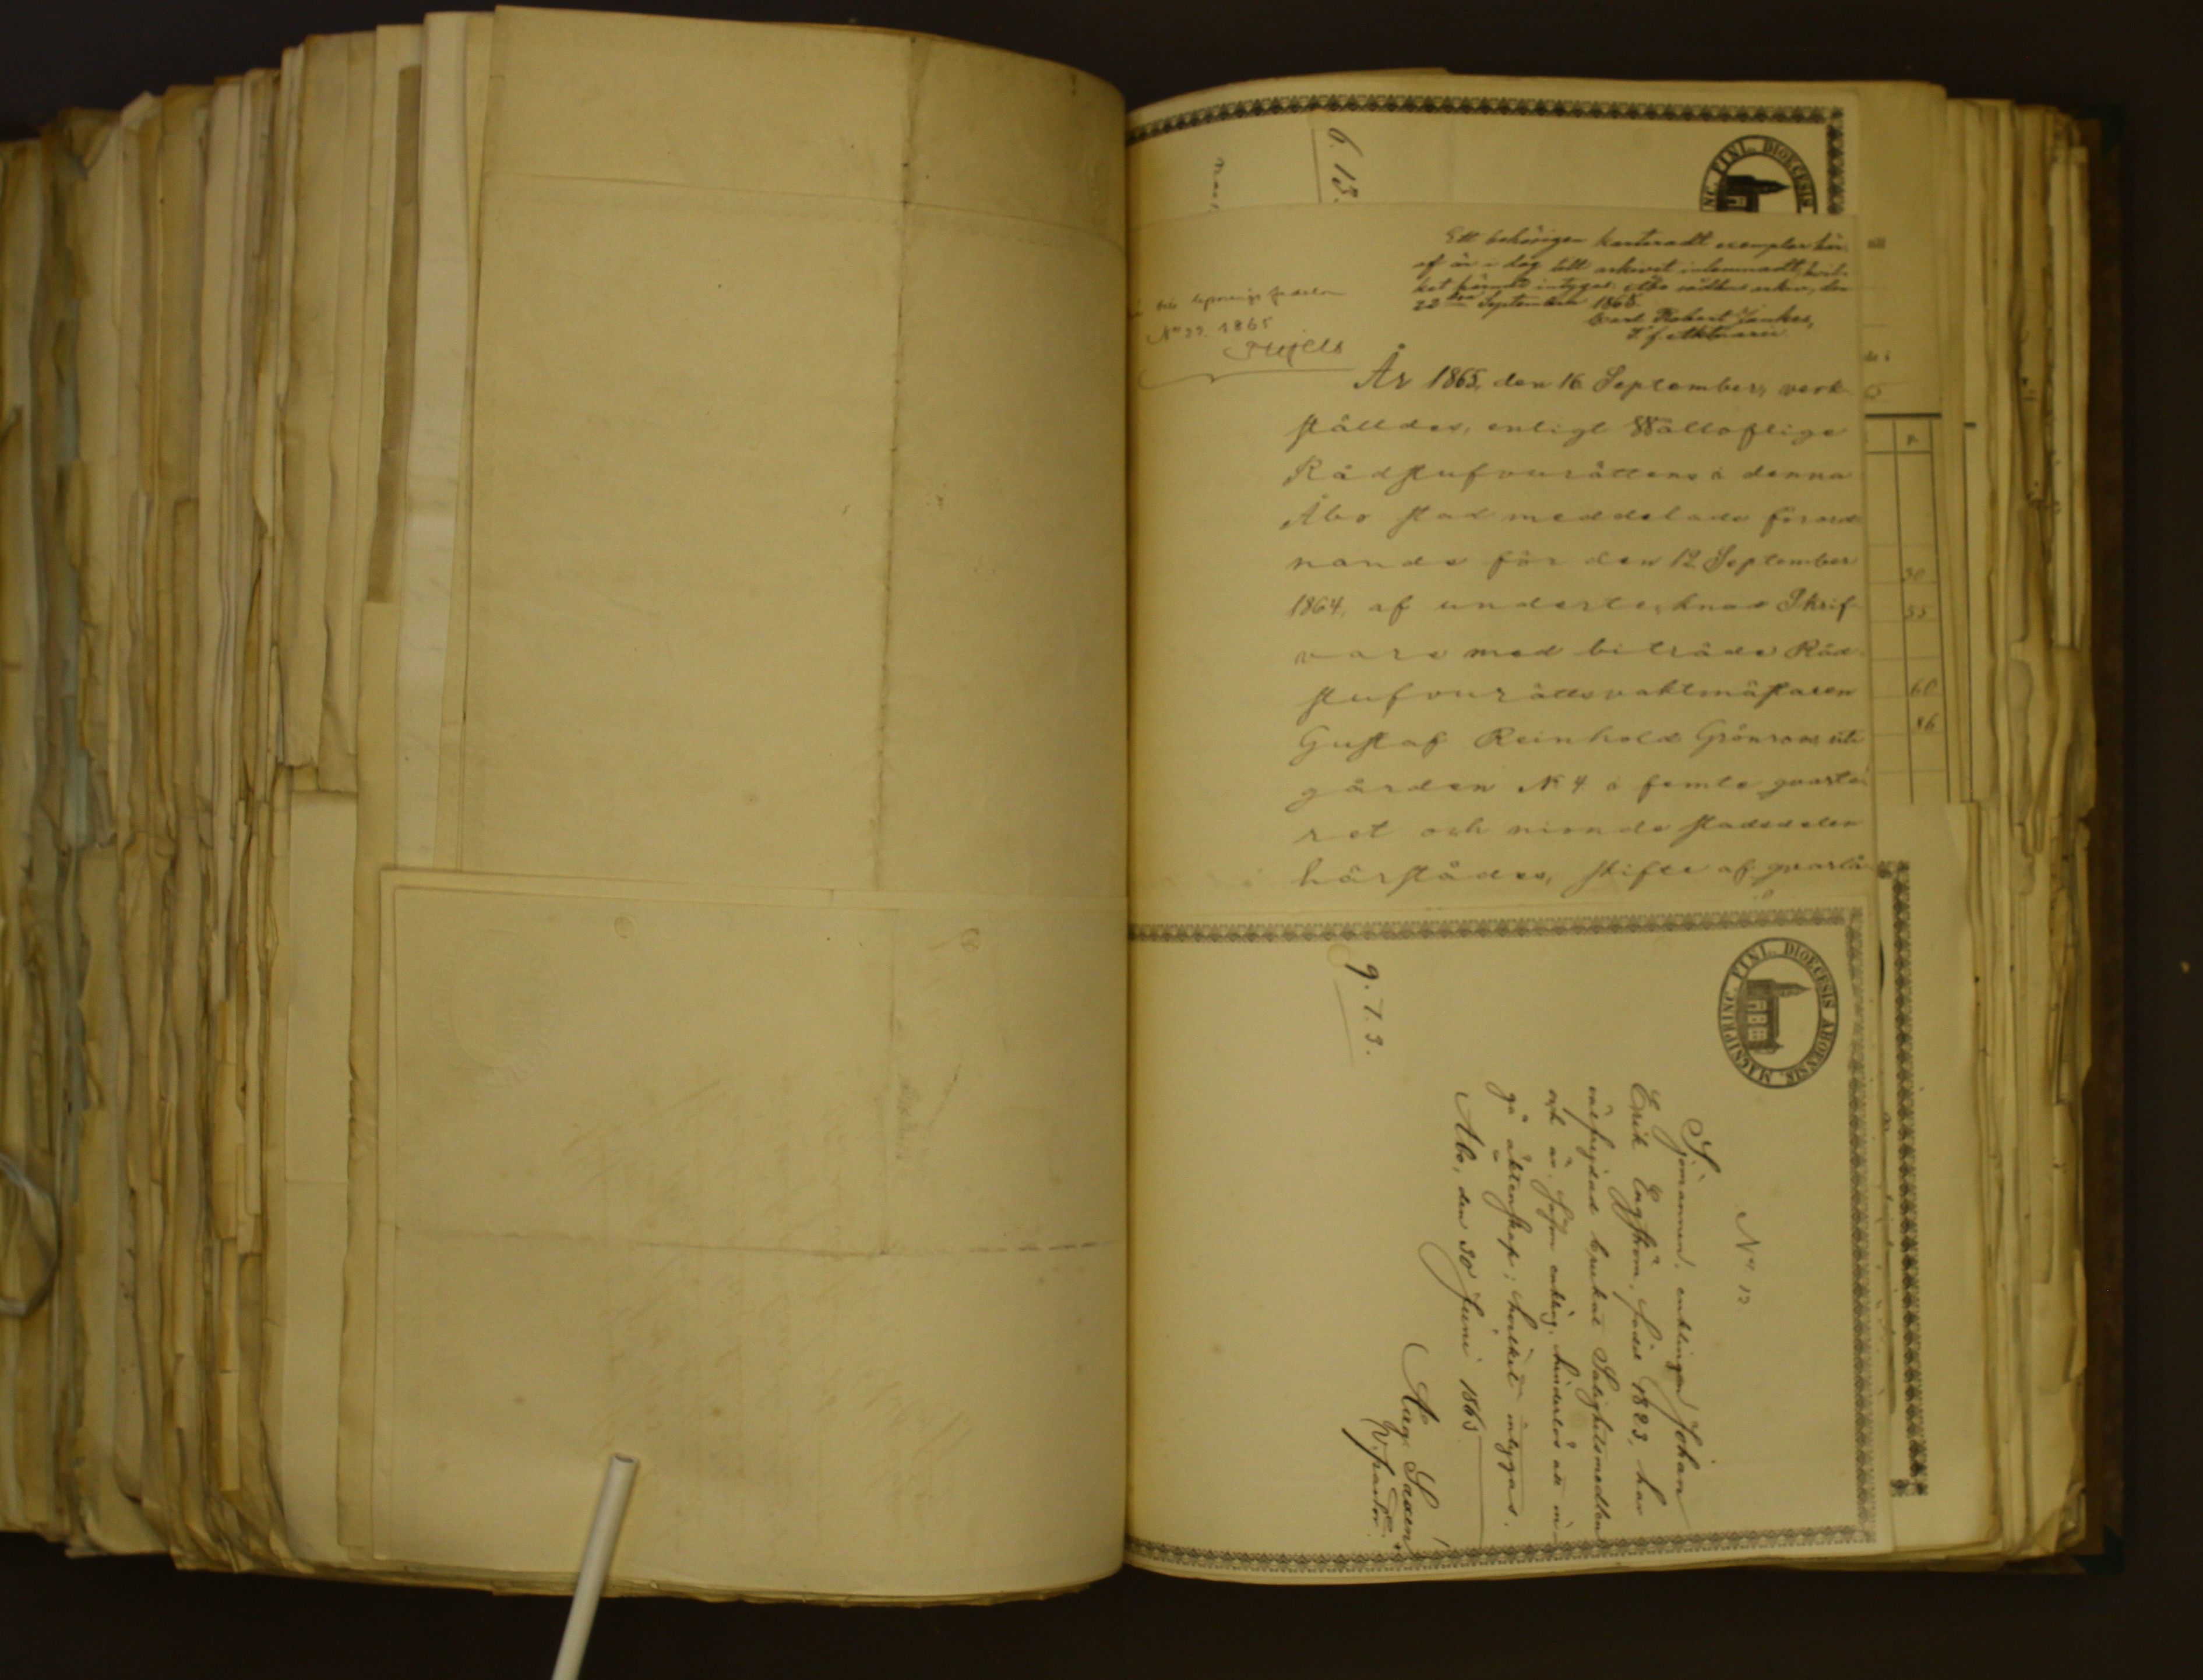 6. 13.
MAGNI PRINC. FINL. DIOECESIS
Ett behörigen karteradt exemplar här-
af är i dag till arkivet inlemnadt, hvil-
ket härmed intygas. Åbo rådhus arkiv, den
22dra September 1865.
Carl Robert
t. f. Aktuarie
No 22. 1865
År 1865, den 16 September, verk-
ställdes, enligt Wällofliga
Rådstufvurättens i denna
Åbo stad meddelade förord-
nande för den 12 September
1864, af undertecknad Skrif-
vare med biträde Råd-
stufvurättsvaktmästaren
Gustaf Reinhold Grönroos, uti
gården No 4 i femte qvarte-
ret och nionde stadsdelen
härstädes, skifte af qvarlå-
30
55
60
86
MAGNI PRINC. FINL. DIOECESIS ABOENSIS.
9. 7. 3.
No 12
Sjömannen, enklingen Johan
Erik Engström, född 1823, har
välfrejdad brukat Salighetsmedlen
och är, såsom enkling, hinderlös att in-
gå äktenskap; hvilket intygas.
Åbo, den 30 Juni 1865.
Aug. Saxén
V. pastor.